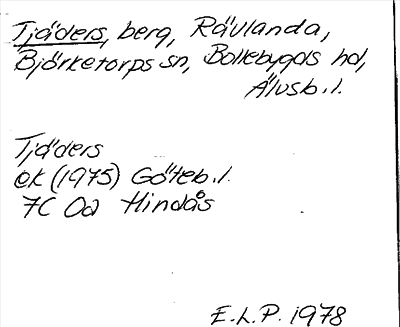 Tjäders, berg, Rävlanda,
Björketorps sn, Bollebygds hd,
Älvsb.l.
Tjäders
ek (1975) Göteb.l.
7C 0d Hindås
E.L.P. 1978